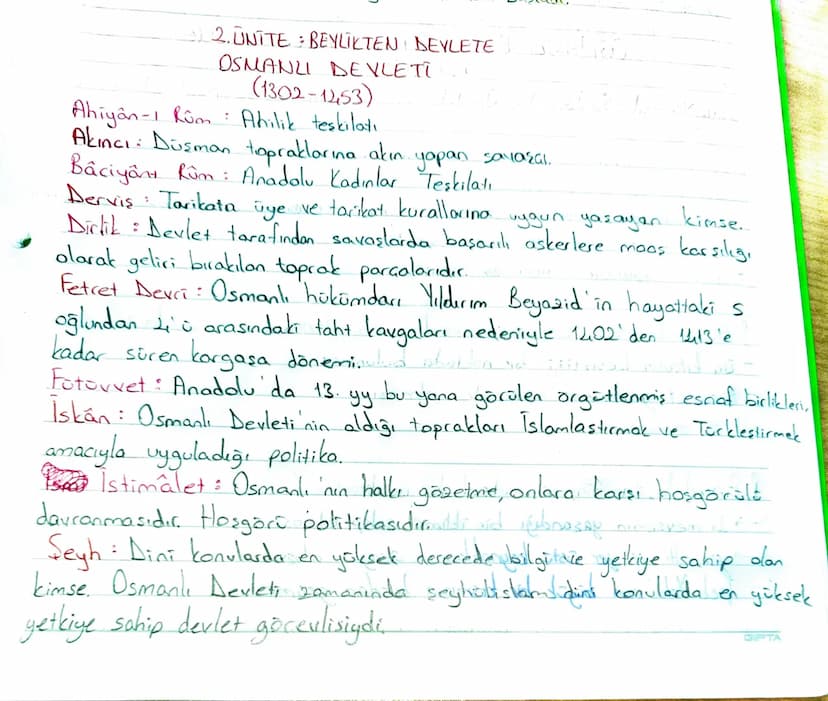 2. ÜNİTE : BEYLİKTEN DEVLETE
OSMANLI DEVLETİ
(1302-1453)
Ahiyân-ı Rûm : Ahilik teşkilatı
Akıncı : Düşman topraklarına akın yapan savaşçı.
Bâciyân-ı Rûm : Anadolu Kadınlar Teşkilatı
Derviş : Tarikata üye ve tarikat kurallarına uygun yaşayan kimse.
Dirlik : Devlet tarafından savaşlarda başarılı askerlere maaş karşılığı
olarak geliri bırakılan toprak parçalarıdır.
Fetret Devri : Osmanlı hükümdarı Yıldırım Beyazid'in hayattaki 5
oğlundan 4'ü arasındaki taht kavgaları nedeniyle 1402'den 1413'e
kadar süren kargaşa dönemi.
Fütüvvet : Anadolu'da 13. yy bu yana görülen örgütlenmiş esnaf birlikleri.
İskân : Osmanlı Devleti'nin aldığı toprakları İslamlaştırmak ve Türkleştirmek
amacıyla uyguladığı politika.
İstimâlet : Osmanlı'nın halkı gözetme, onlara karşı hoşgörülü
davranmasıdır. Hoşgörü politikasıdır.
Şeyh : Dini konularda en yüksek derecede bilgi ve yetkiye sahip olan
kimse. Osmanlı Devleti zamanında şeyhülislam dini konularda en yüksek
yetkiye sahip devlet görevlisiydi.
GIPTA